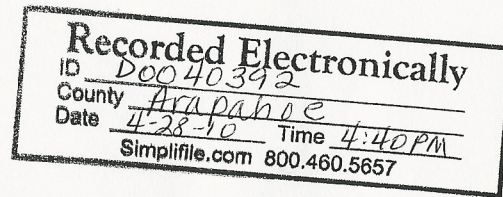 Recorded Electronically
ID D0040392
County Arapahoe
Date 4-28-10 Time 4:40PM
Simplifile.com 800.460.5657